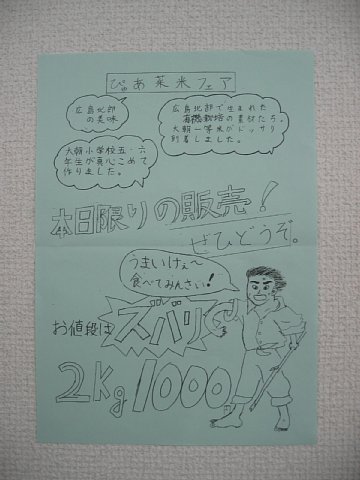 ぴゅあ菜米フェア
広島北部
の美味
広島北部で生まれた
有機栽培の素材たち。
大朝一等米がドッサリ
到着しました。
大朝小学校五・六
年生が真心こめて
作りました。
本日限りの販売!
ぜひどうぞ。
うまいけぇ〜
食べてみんさい!
お値段は
ズバリ
2kg 1000